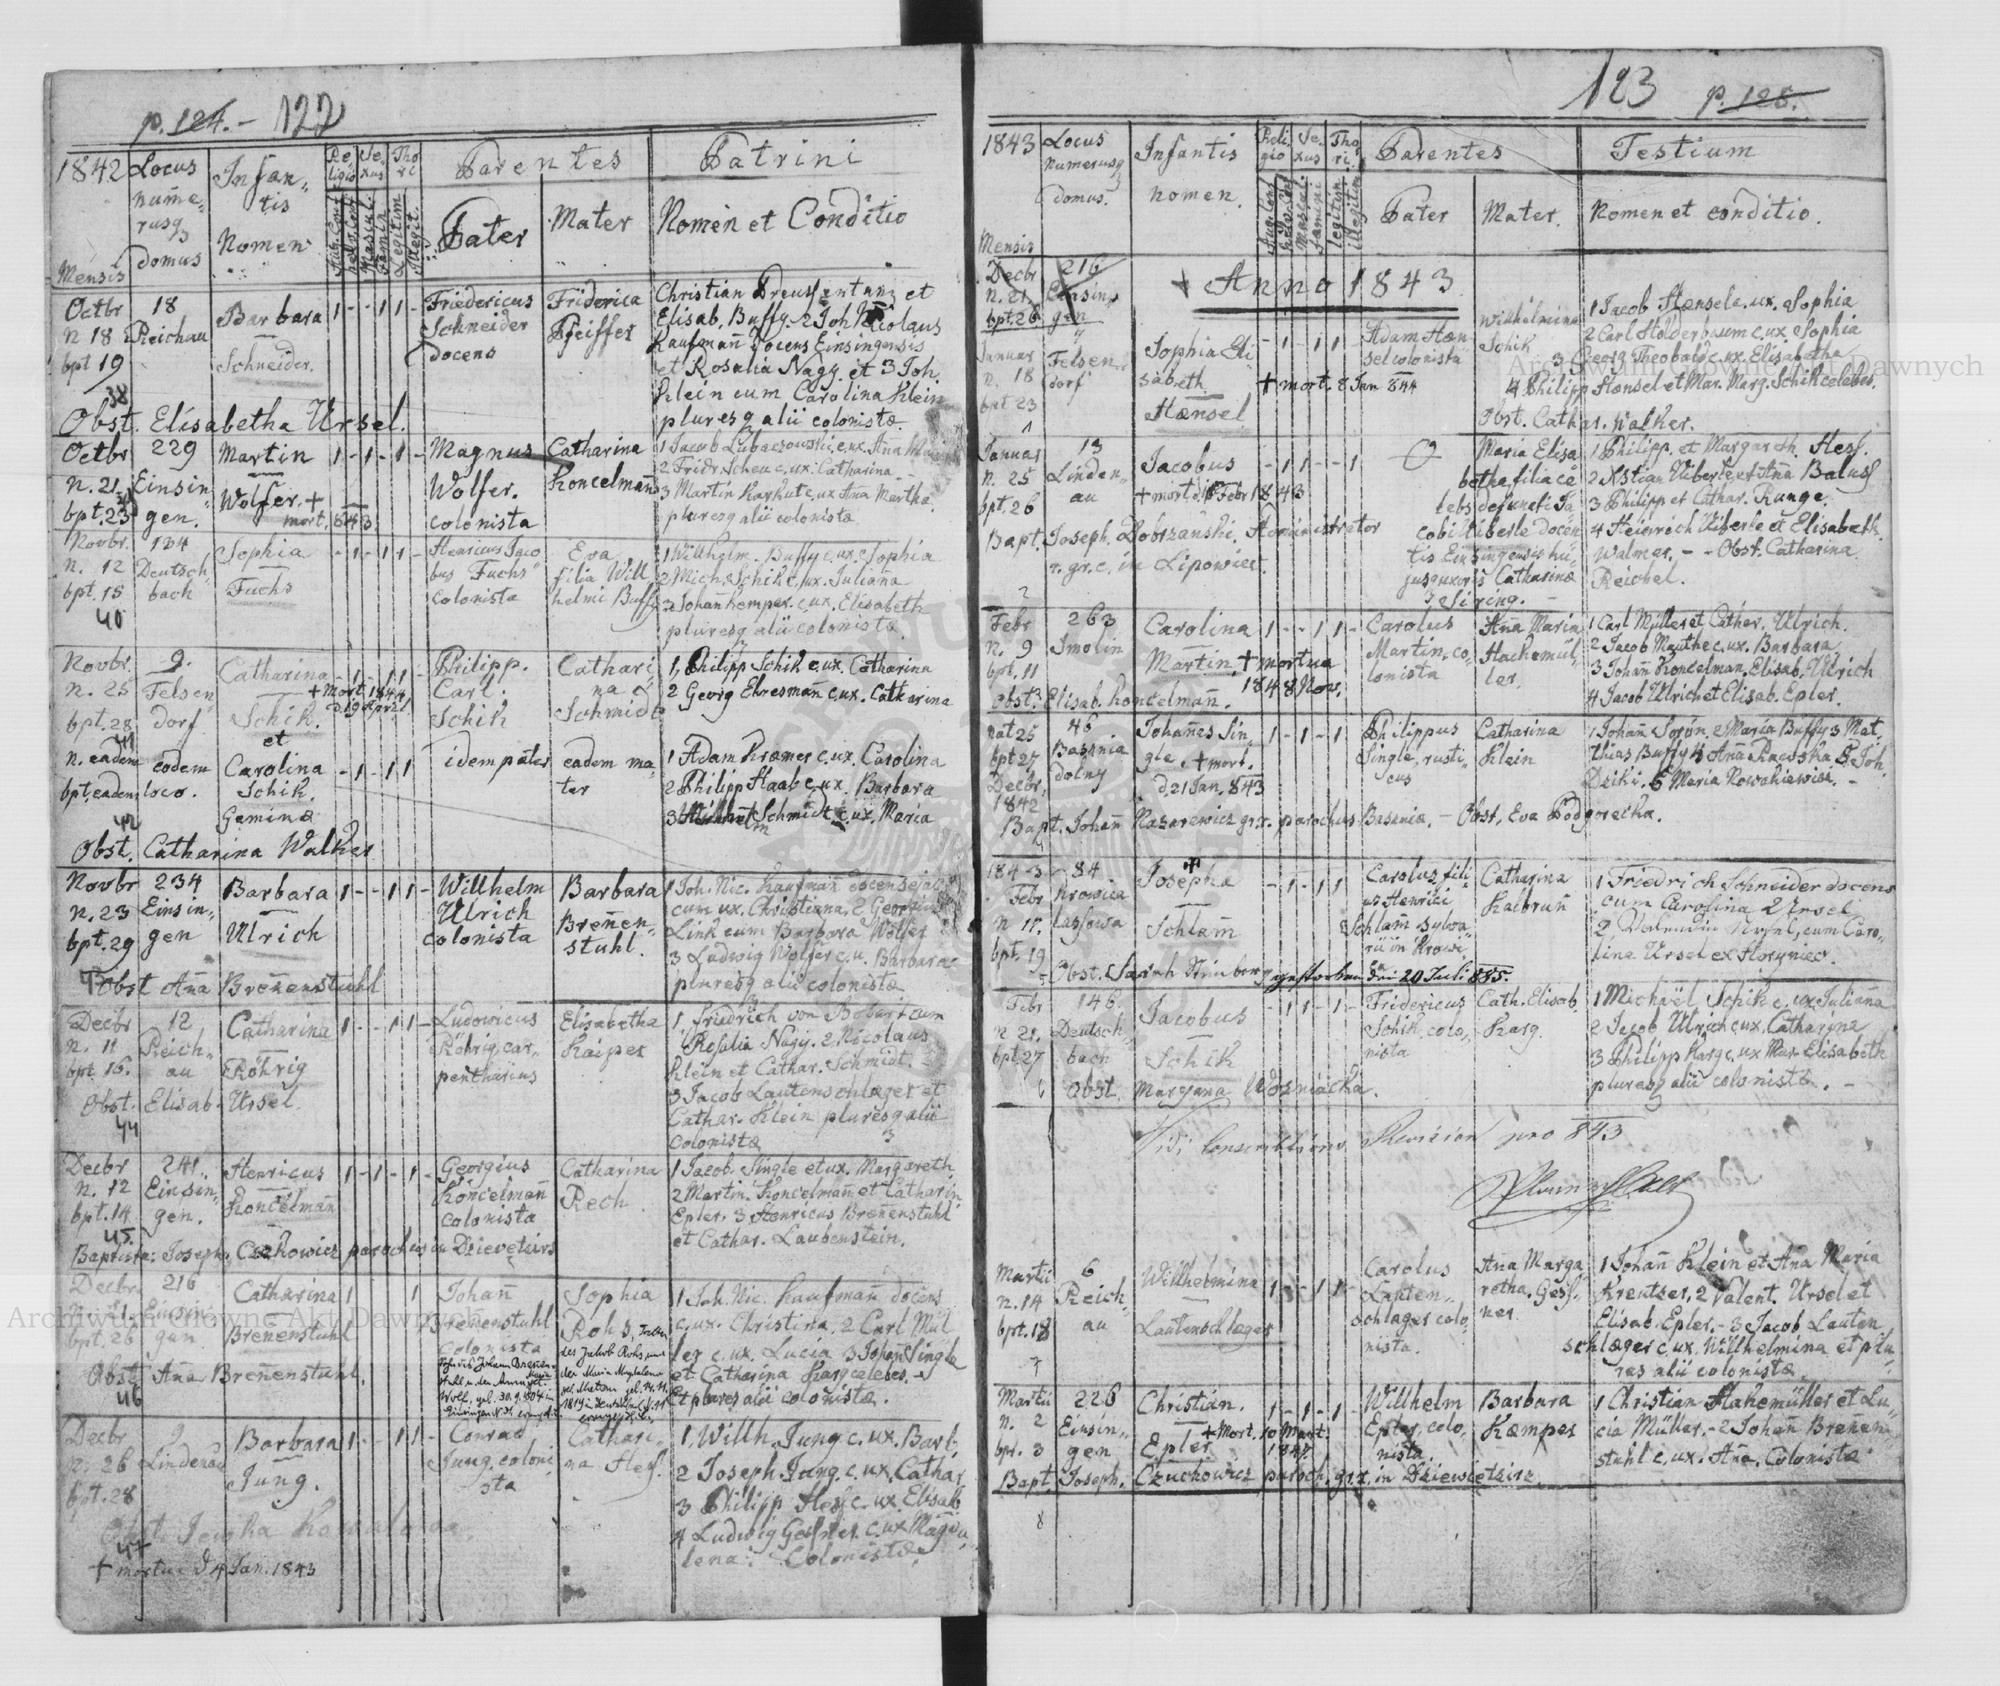 p. 124. - 122
1842
Locus
nume-
rusq3
domus
Mensis
Infan-
tis
Nomen
Re
ligio
Se-
xus
Tho
ri
Aug. Conf
Helv. Conf
Mascul.
Femin
Legitim
Illegit.
Parentes
Pater
Mater
Patrini
Nomen et Conditio
Octbr
n 18
bpt 19
38
18
Reichau
Barbara
Schneider.
1 - - 1 1 -
Friedericus
Schneider
docens
Friderica
Pfeiffer
Christian et
Elisab. Buffy. 2 Joh Nicolaus
Kaufman̄ docens Einsingensis
et Rosalia Nagy et 3 Joh.
Klein cum Carolina Klein
pluresq alii colonistæ.
Obst. Elisabetha Ursel.
Octbr
n. 21
bpt. 23
229
Einsin-
gen.
Martin
Wolfer. +
mort. 843
1 - 1 - 1 -
Magnus
Wolfer.
colonista
Catharina
Koncelman̄
1 Jacob Lubaczowski c. ux. An̄a Maria
2 Fridr. Scheu c. ux. Catharina
3 Martin Karkut c. ux An̄a Martha
pluresq alii colonistæ
Novbr.
n. 12
bpt. 15
40
134
Deutsch-
bach
Sophia
Fuchs
- 1 - 1 1 -
Henricus Jaco
bus Fuchs
colonista
Eva
filia Will
helmi Buffy
1 Willhelm. Buffy c. ux. Sophia
2 Mich. Schik c. ux. Juliana
3 Johan̄ Kemper. c. ux. Elisabeth
pluresq alii colonistæ.
Novbr.
n. 25
bpt. 28
41
9.
Felsen
dorf
Catharina
+ Mort. 1844
d. 19 April
Schik.
et
- 1 - 1 1
Philipp.
Carl.
Schik
Cathari
na
Schmidt
1, Philipp Schik c. ux. Catharina
2 Georg Ehresman̄ c. ux. Catharina
n. eadem
bpt. eadem
42
eodem
loco.
Carolina
Schik.
Geminæ
- 1 - 1 1
idem pater
eadem ma-
ter
1 Adam Kræmer c. ux. Carolina
2 Philipp Haab c. ux. Barbara
3 Schmidt c. ux. Maria
Obst. Catharina Walker
Novbr
n. 23
bpt. 29
43
234
Einsin-
gen
Barbara
Ulrich
1 - - 1 1 -
Willhelm
Ulrich
colonista
Barbara
Bren̄en-
stuhl.
1 Joh. Nic. Kaufman̄ docens
cum ux. Christiana. 2 Georg
Link cum Barbara Wolfer
3 Ludwig Wolfer c. u. Barbara
pluresq alii colonistæ
Obst An̄a Bren̄enstuhl
Decbr
n. 11
bpt. 16.
44
12
Reich-
au
Catharina
Röhrig
1 - - 1 1 -
Ludowicus
Röhrig, car-
pentharius
Elisabetha
Kaiper
1, Friedrich von Bobart cum
Rosalia Nagy. 2 Nicolaus
Klein et Cathar. Schmidt.
3 Jacob Lautenschlæger et
Cathar. Klein pluresq alii
colonistæ
Obst. Elisab. Ursel.
Decbr
n. 12
bpt. 14
45.
241.
Einsin-
gen.
Henricus
Koncelman̄
1 - 1 - 1 -
Georgius
Koncelman̄
colonista
Catharina
Rech
1 Jacob. Single et ux. Margareth
2 Martin. Koncelman̄ et Catharin.
Epler. 3 Henricus Bren̄enstuhl
et Cathar. Laubenstein.
Baptista: Joseph. Czuhowicz parochus in Dzievetsirs
Decbr
n. 21.
bpt. 26
46
216
Einsin
gen
Catharina
Bren̄enstuhl
1 1
Johan̄
Bren̄enstuhl
colonista
Sophia
Rohs, Tochter
des Jakob Rohs, und
der Maria Magdalena
1 Joh. Nic. Kaufman̄ docens
c. ux. Christina. 2 Carl Mül
ler c. ux. Lucia 3 Johan̄ Single
et Catharina Karg celebes. -
Et plures alii colonistæ.
Obst An̄a Bren̄enstuhl.
Decbr
n. 26
bpt. 28
47
9
Lindenau
Barbara
Jung.
1 - - 1 1 -
Conrad
Jung, coloni
sta
Cathari-
na Hess.
1, Willh. Jung c. ux. Barb.
2 Joseph Jung. c. ux. Cathar
3 Philipp Hess c. ux Elisab.
4 Ludwig Gessner c. ux Magda
lena: Colonistæ.
+ mortu. d 4 Jan. 1843
123 p. 125.
1843
Mensis
Locus
numerusq3
domus.
Infantis
nomen.
Reli-
gio
Se-
xus
Tho
ri.
Aug. Conf
Helv. Conf
Mascul.
fæmini
legitim
illegitim
Parentes
Pater
Mater.
Testium
Nomen et conditio.
Decbr
n. 21.
bpt. 26
216
Einsin-
gen
+ Anno 1843
Januar
n. 18
bpt 23
1
"
Felsen-
dorf
Sophia Eli
sabeth
Hænsel
- 1 - 1 1
+ mort. 8 Jan 844
Adam Hæn
sel colonista
Willhelmina
Schik
1 Jacob Hænsel c. ux. Sophia
2 Carl Holderbaum c. ux. Sophia
3 Georg Theobald c. ux. Elisabetha
4 Philipp Hænsel et Mar. Marg. Schik celebes.
Obst. Cathar. Walker.
Januar
n. 25
bpt. 26
2
13
Linden-
au
Jacobus
+ mort. d 8 Febr 1843
- 1 1 - - 1
O
Maria Elisa
betha, filia cæ
lebs defuncti Ja
cobi Uiberle docen
tis Einsingensis hu-
jusq uxoris Catharinæ
Jesiring. -
1 Philipp. et Margareth. Hess.
2 Xstian Uiberle et An̄a Baluss
3 Philipp et Cathar. Runge.
4 Heinrich Uiberle et Elisabeth.
Walmer. - - Obst. Catharina
Reichel.
Bapt. Joseph. Dobrzanski. Administrator
r. gr. c. in Lipowiec.
Febr
n. 9
bpt. 11
263
Smolin
Carolina
Martin. + mortua
1848 Nov.
1 - - 1 1 -
Carolus
Martin, co-
lonista
An̄a Maria
Hackemül-
ler.
1 Carl Müller et Cather. Ulrich.
2 Jacob Mauthe c. ux. Barbara
3 Johan̄ Koncelman. Elisab. Ulrich
4 Jacob Ulrich et Elisab. Epler.
Obst. Elisab. Koncelman̄.
nat 25
bpt 27
Decbr.
1842
46
Basznia
dolny
Johan̄es Sin-
gle + mort.
d. 21 Jan. 843
1 - 1 - 1
Philippus
Single, rusti-
cus
Catharina
Klein
1 Johan̄ Sorón. 2 Maria Buffy 3 Mat.
thias Buffy 4 An̄a Racoska 5 Joh.
Dziki. 6 Maria Nowakiewicz. -
Bapt. Johan̄ Nazarewicz gr. r. parochus Baszniæ. - Obst. Eva Podgorecka.
1843
Febr
n 17.
bpt. 19
5
84
Krowica
Lassowa
Josepha
Schlam̄
- 1 - 1 1
Carolus fili-
us Henrici
Schlam̄ sylva-
rii in Krowi-
ca
Catharina
Kalbrun̄
1 Friedrich Schneider docens
cum Carolina 2 Ursel
2 Valentin Ursel, cum Caro-
lina Ursel ex Horyniec.
Obst. Sarah Steinberg gestorben den 20 Juli 885.
Febr
n 21.
bpt. 27
6
146
Deutsch-
bach
Jacobus
Schik
- 1 1 - 1 -
Fridericus
Schik, colo-
nista
Cath. Elisab.
Karg.
1 Michael Schik c. ux Julian̄a
2 Jacob Ulrich c. ux. Catharina
3 Philipp Karg c. ux Mar. Elisabeth
pluresq alii colonistæ. -
Obst. Maryana Wozniacka.
Vidi Conscriptions Revision pro 843
Martii
n. 14
bpt. 18
7
6
Reich-
au
Willhelmina
Lautenschlæger
1 - - 1 1 -
Carolus
Lauten-
schlager colo-
nista.
An̄a Marga
retha Gess-
ner
1 Johan̄ Klein et An̄a Maria
Kreutser, 2 Valent. Ursel et
Elisab. Epler. - 3 Jacob Lauten
schlæger c. ux. Willhelmina et plu-
res alii colonistæ.
Martii
n. 2
bpt. 3
8
226
Einsin-
gen
Christian.
Epler
+ Mort. 10 Mart.
1847.
1 - 1 - 1 -
Willhelm
Epler, colo-
nista
Barbara
Kæmper
1 Christian Hakemüller et Lu-
cia Müller. - 2 Johan̄ Bren̄en-
stuhl c. ux. An̄a. Colonistæ
Bapt. Joseph. Czuchowicz paroch. gr. r. in Dziewietsirz.
Archiwum Główne Akt Dawnych
Archiwum Główne Akt Dawnych